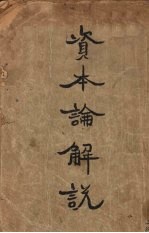 資本論解説